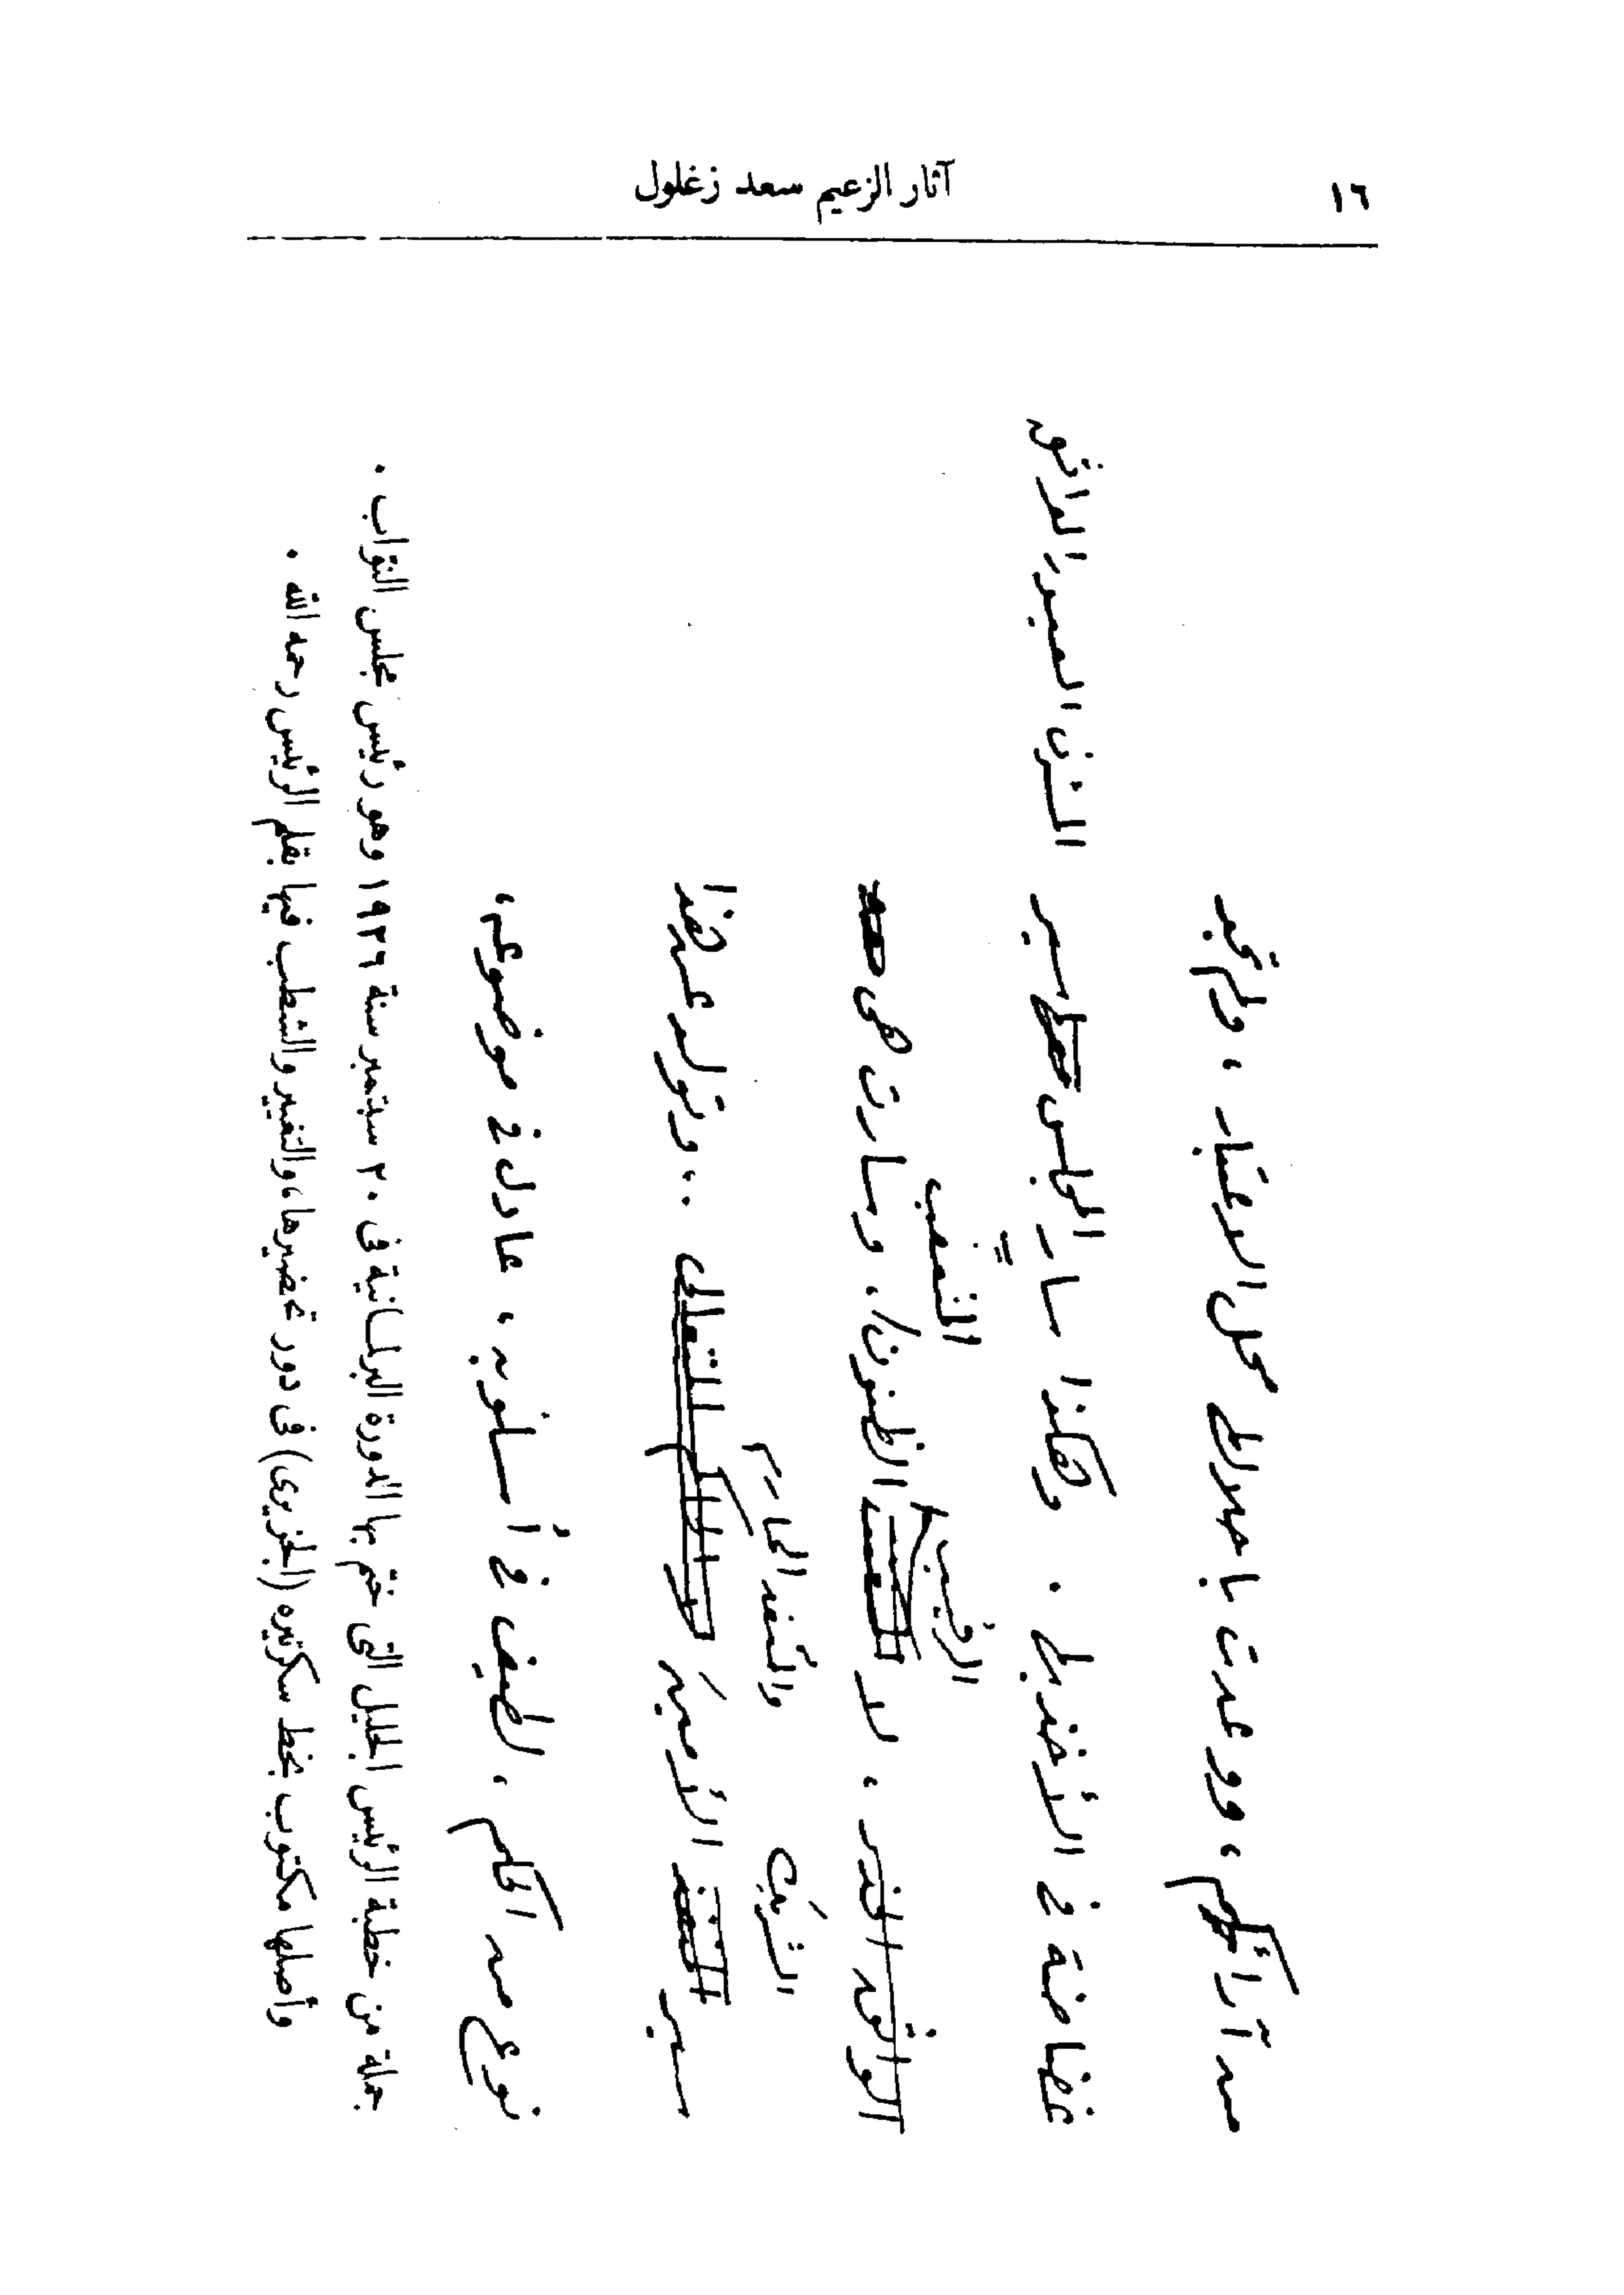 ١٦
آثار الزعيم سعد زغلول
من آرائكم ، ووعدت باصلاح محل الاعتبار ، ولم تجد
غضاضة فى الأخذ بها . وهكذا سار المجلس سير المتزن البصير الواثق
الواثق الحذر ، لا الرقيب الظنون / . وسارت هى
المتعنت
سير الأمين ، وتولد عن هذا
الشريك والمنفذ الحازم
نوع من الحكم ، لطيف فى أسلوبه ، عادل فى موضوعه ،
جملة من خطبة الرئيس الجليل التى ختم بها الدورة البرلمانية فى ٢٠ سبتمبر سنة ١٩٢٦ وهو رئيس مجلس النواب .
وأصلها مكتوب بخط سكرتيره (الجزيرى) فى دور تحضيرها ، والتغيير والشطب فيها بقلم الرئيس رحمه الله .